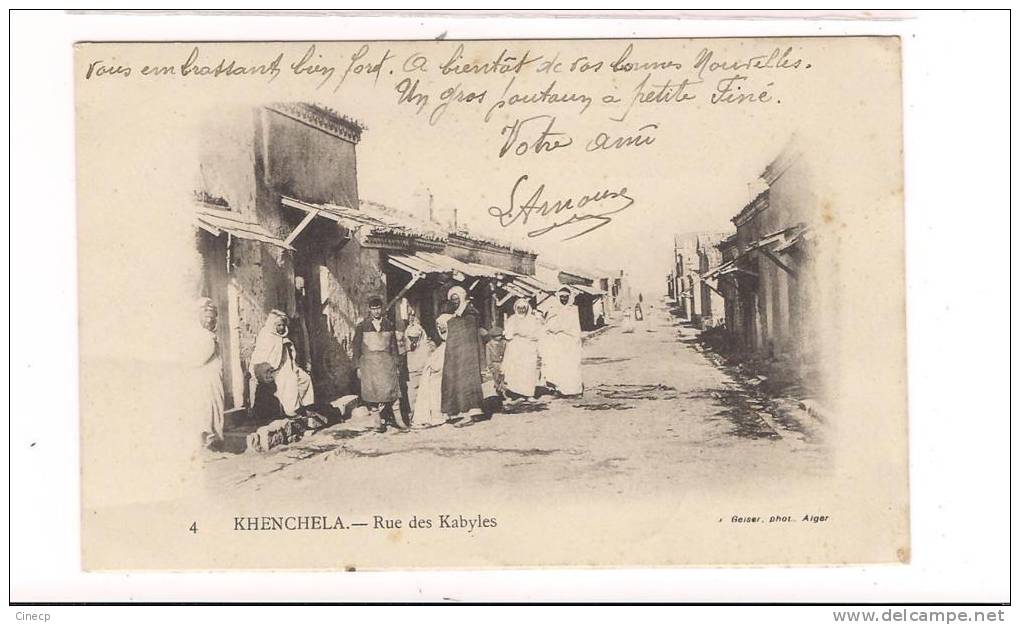 vous embrassant bien fort. A bientôt de vos bonnes Nouvelles.
Un gros à petite Finé.
Votre ami
L Arnoux
4 KHENCHELA.— Rue des Kabyles
Geiser, phot., Alger
Cinecp
www.delcampe.net